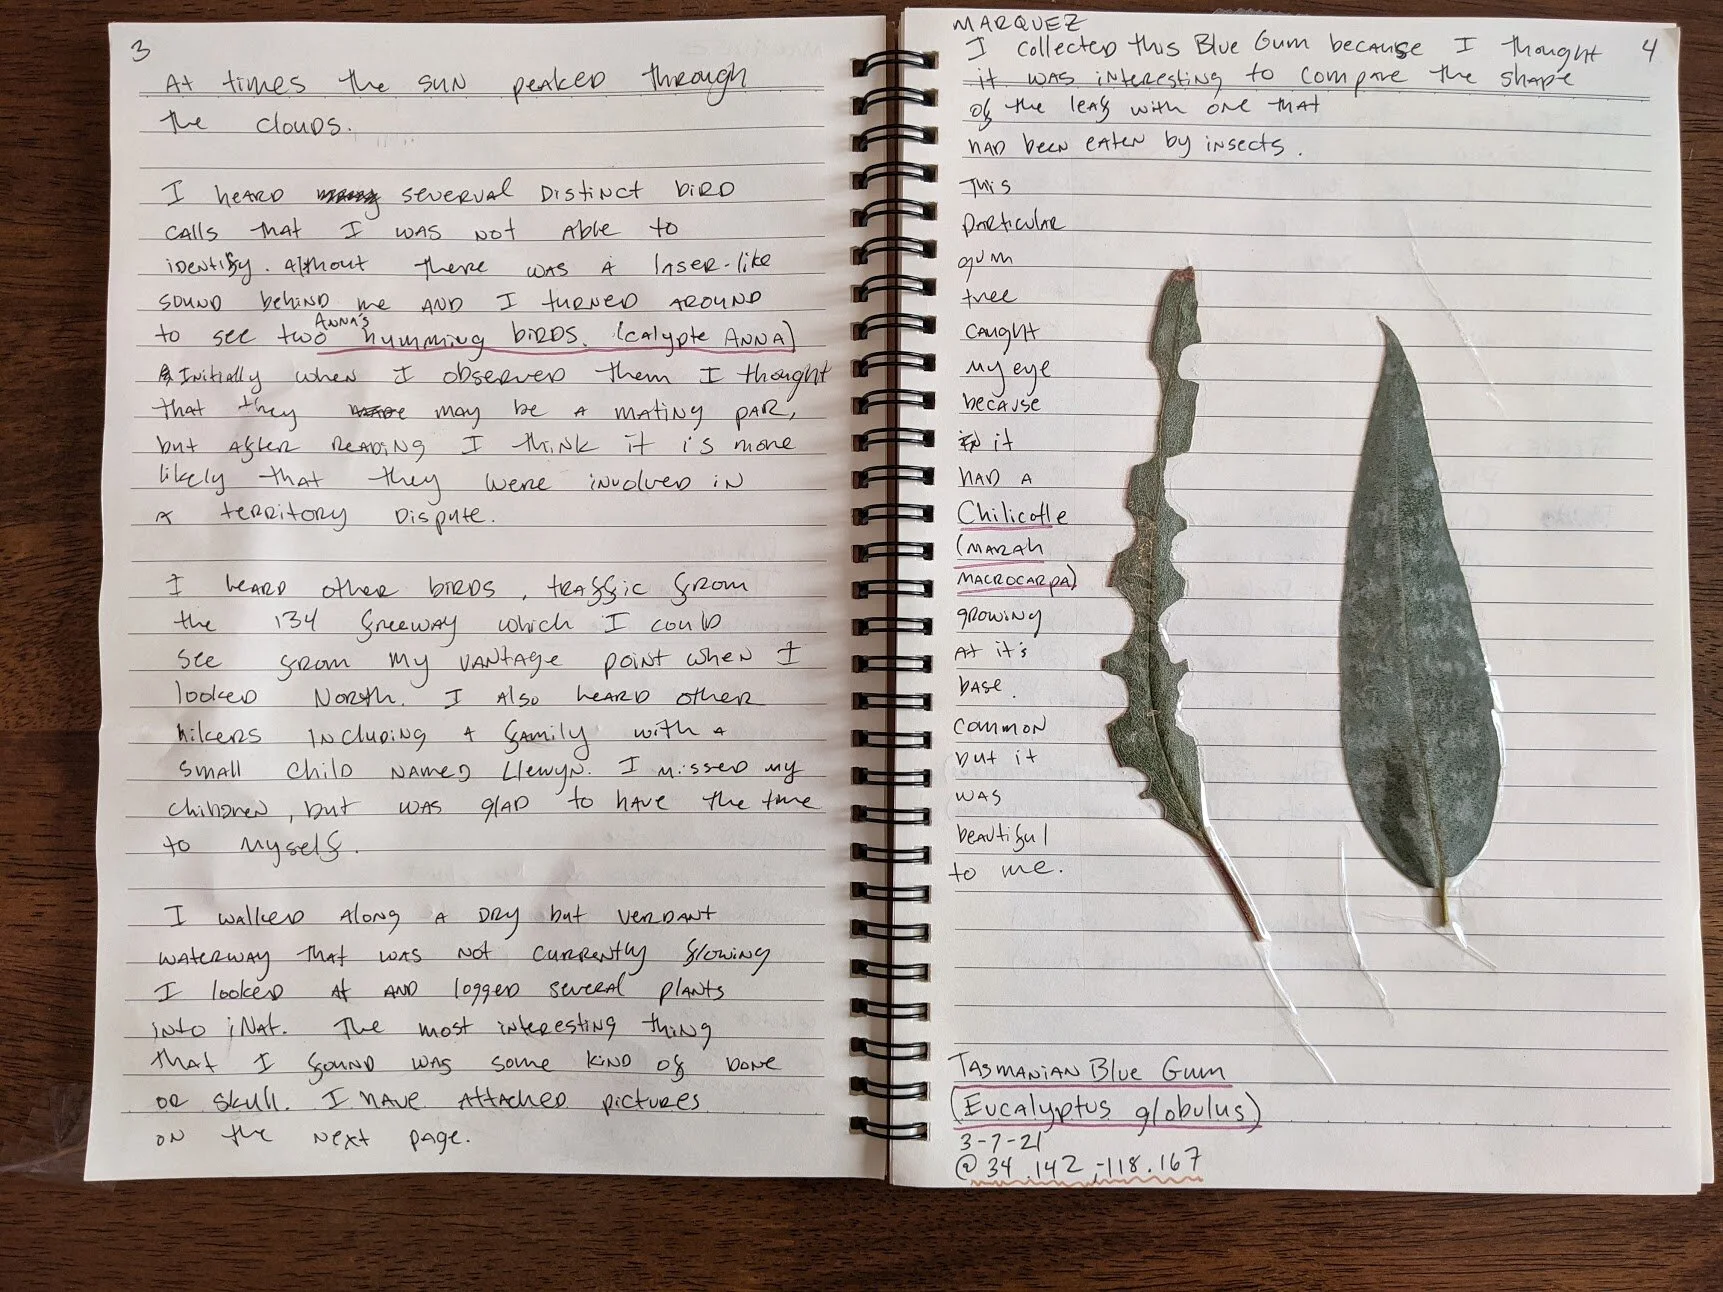 3
At times the sun peaked through
the clouds.
I heard severval distinct bird
calls that I was not able to
identify. Althout there was a laser-like
sound behind me and I turned around
to see two Anna's humming birds. (calypte Anna)
Initially when I observed them I thought
that they may be a mating par,
but after reading I think it is more
likely that they were involved in
a territory dispute.
I heard other birds, traffic from
the 134 freeway which I could
see from my vantage point when I
looked North. I also heard other
hikers including a family with a
small child named Llewyn. I missed my
children, but was glad to have the time
to myself.
I walked along a dry but verdant
waterway that was not currently flowing
I looked at and logged several plants
into iNat. The most interesting thing
that I found was some kind of bone
or skull. I have attached pictures
on the next page.
MARQUEZ
4
I collected this Blue Gum because I thought
it was interesting to compare the shape
of the leaf with one that
had been eaten by insects.
This
particular
gum
tree
caught
my eye
because
it
had a
Chilicotle
(marah
macrocarpa)
growing
at it's
base.
common
but it
was
beautiful
to me.
Tasmanian Blue Gum
(Eucalyptus globulus)
3-7-21
@ 34.142,-118.167